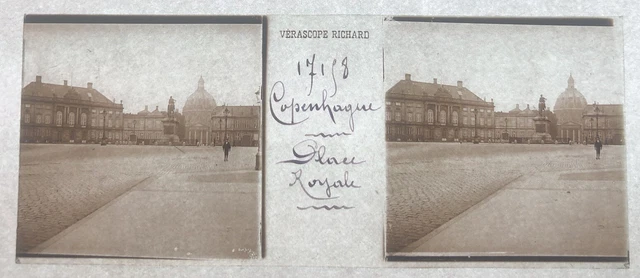 VÉRASCOPE RICHARD
17158
Copenhague
Place
Royale